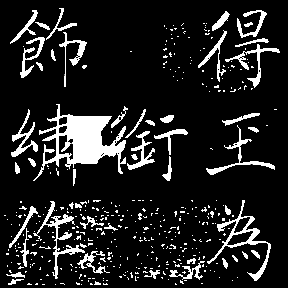 得王為
銜
飾繡作